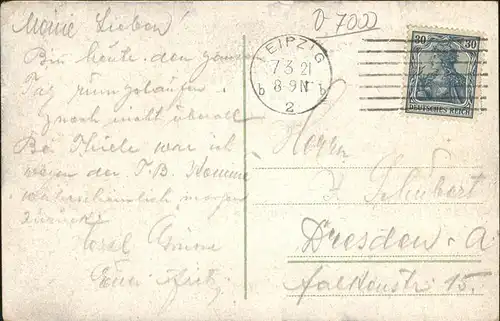 Meine Lieben!
Bin heute den ganzen
Tag rumgelaufen
noch nicht überall
Bei Thiele war ich
wegen der T.B. Komme
wahrscheinlich morgen
zurück.
Grüsse
Euer Fritz
D 7000
LEIPZIG
7.3.21
8-9N
b b
2
30 30
DEUTSCHES REICH
Herrn
Schubert
Dresden-A.
Falkenstr 15.